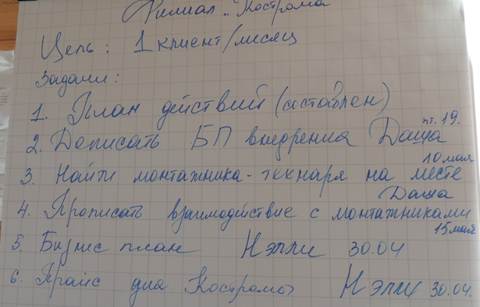 Филиал. Кострома
Цель: 1 клиент/месяц
Задачи:
1. План действий (составлен)
пт. 19.
2. Дописать БП внедрения Даша
10 мая
3. Найти монтажника-технаря на месте
Даша
4. Прописать взаимодействие с монтажниками
15 мая
5. Бизнес план Нэлли 30.04
6. Прайс для Костромы Нэлли 30.04.